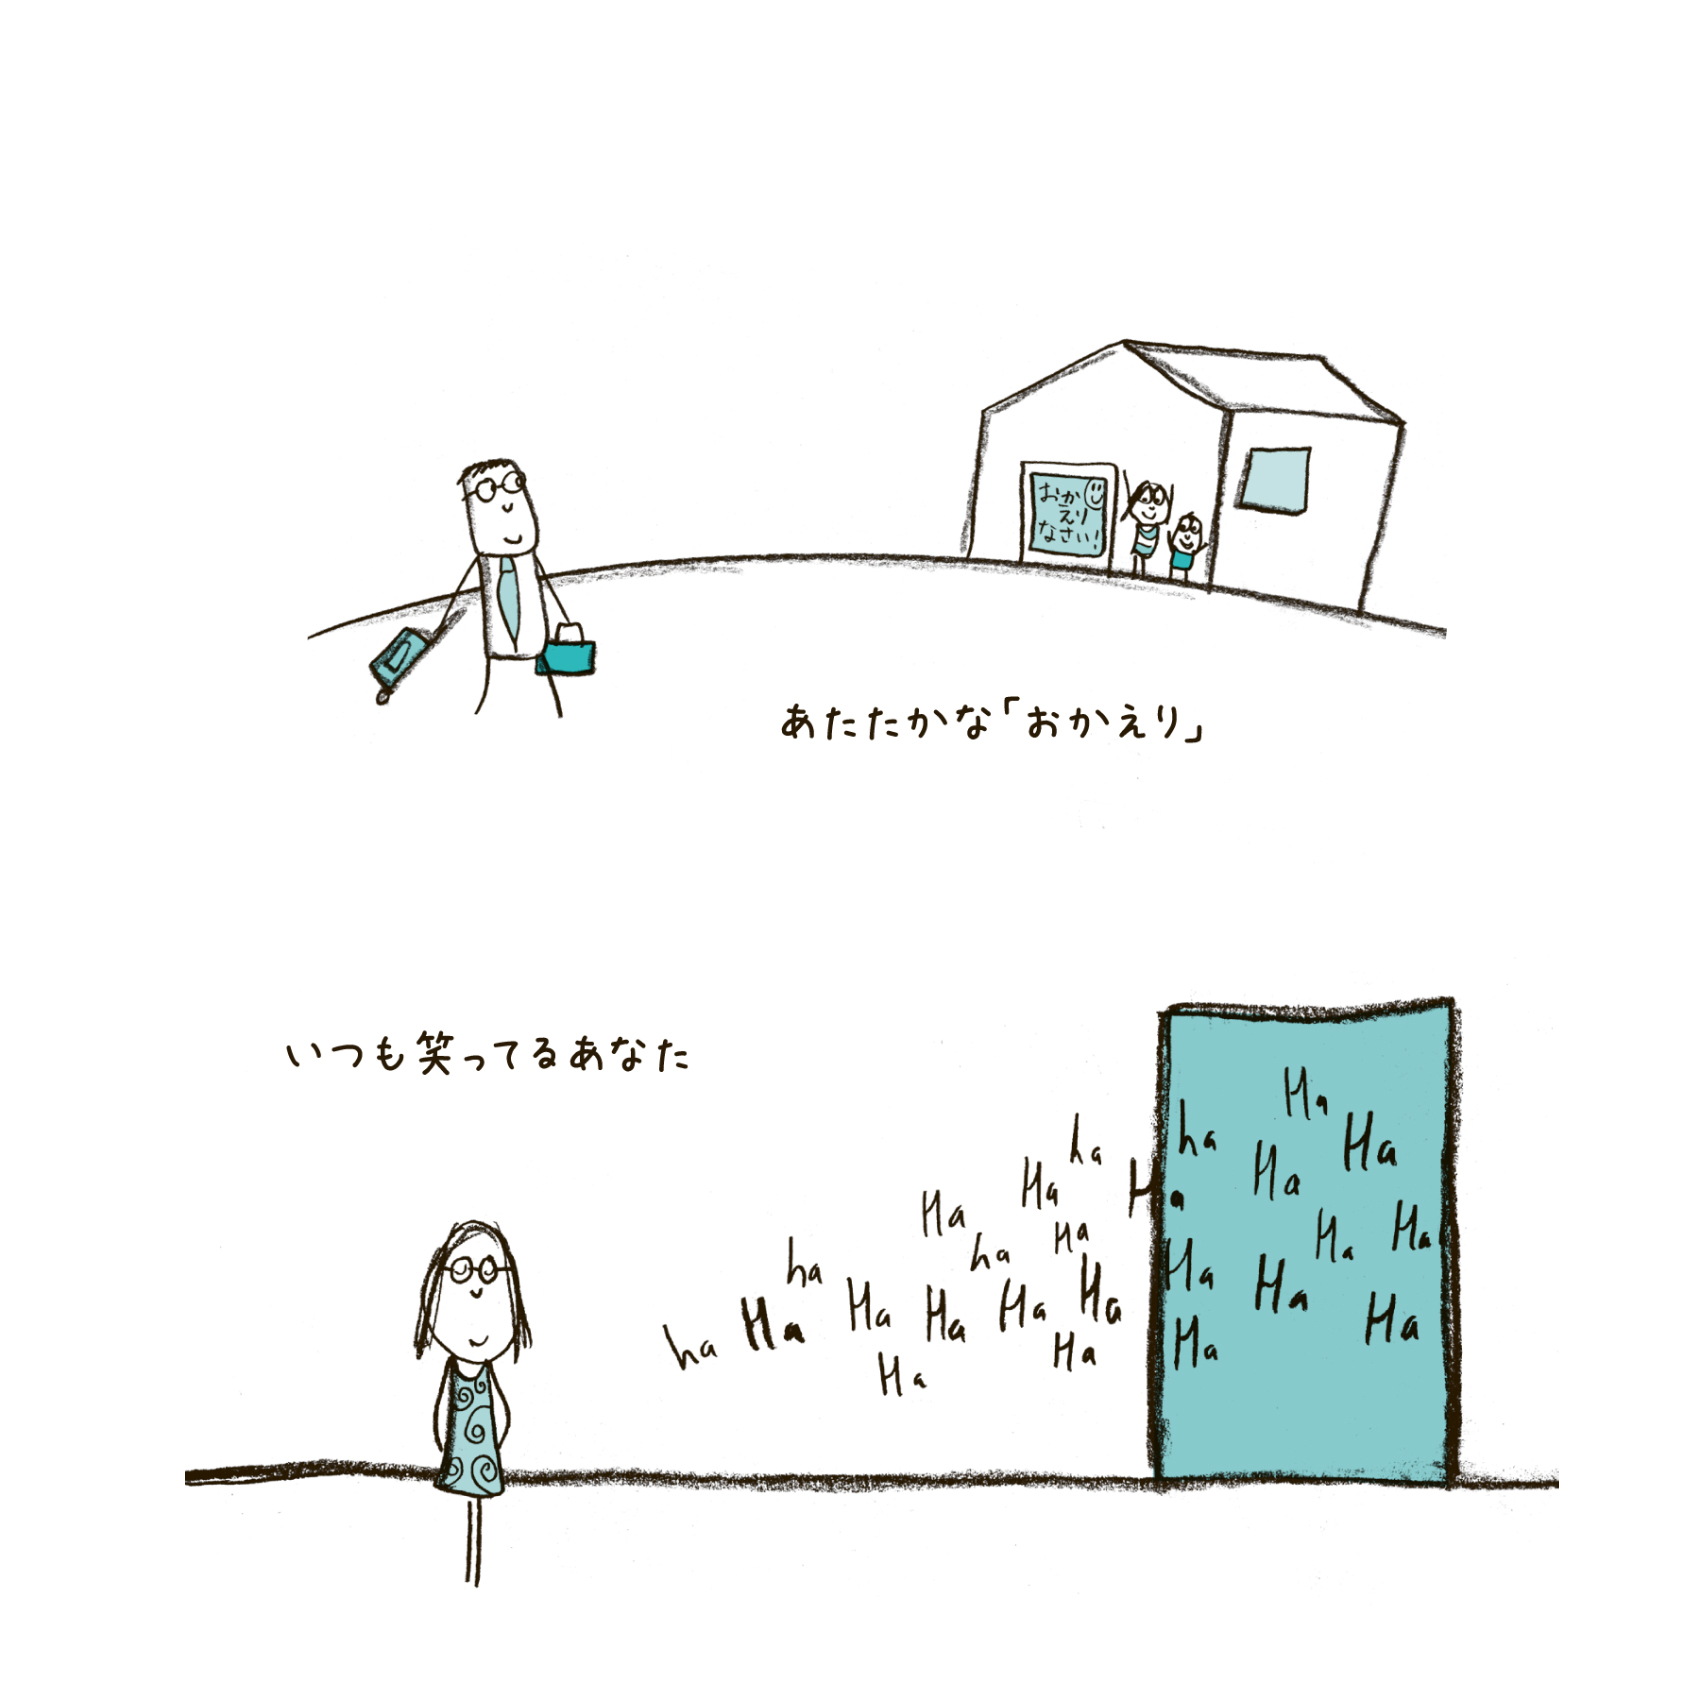 おか
えり
なさい!
あたたかな「おかえり」
いつも笑ってるあなた
Ha
ha
Ha
ha
Ha
Ha
Ha
Ha
Ha
Ha
Ha
Ha
ha
ha
Ha
Ha
Ha
Ha
Ha
Ha
Ha
Ha
Ha
ha
Ha
Ha
Ha